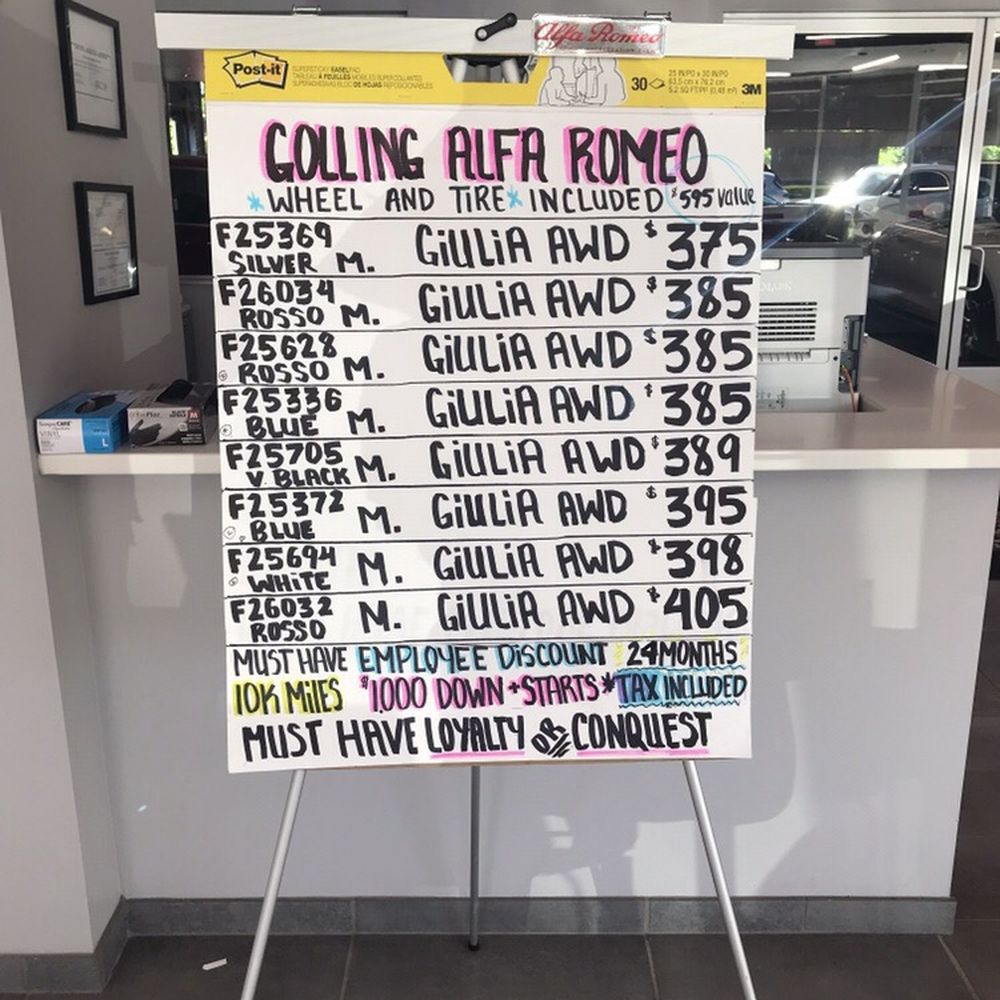 Alfa Romeo
Post-it
SUPERSTICKY EASEL PAD
30
25 IN/PO x 30 IN/PO
63,5 cm x 76,2 cm
3M
GOLLING ALFA ROMEO
*WHEEL AND TIRE* INCLUDED $595 value
F25369 SILVER M. GIULIA AWD $375
F26034 ROSSO M. GIULIA AWD $385
F25628 ROSSO M. GIULIA AWD $385
F25336 BLUE M. GIULIA AWD $385
F25705 V. BLACK M. GIULIA AWD $389
F25372 BLUE M. GIULIA AWD $395
F25694 WHITE M. GIULIA AWD $398
F26032 ROSSO M. GIULIA AWD $405
MUST HAVE EMPLOYEE DISCOUNT 24 MONTHS
10K MILES $1,000 DOWN + STARTS * TAX INCLUDED
MUST HAVE LOYALTY OR CONQUEST
VINYL
L
M